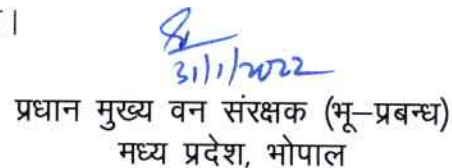 ।
31/1/2022
प्रधान मुख्य वन संरक्षक (भू–प्रबन्ध)
मध्य प्रदेश, भोपाल